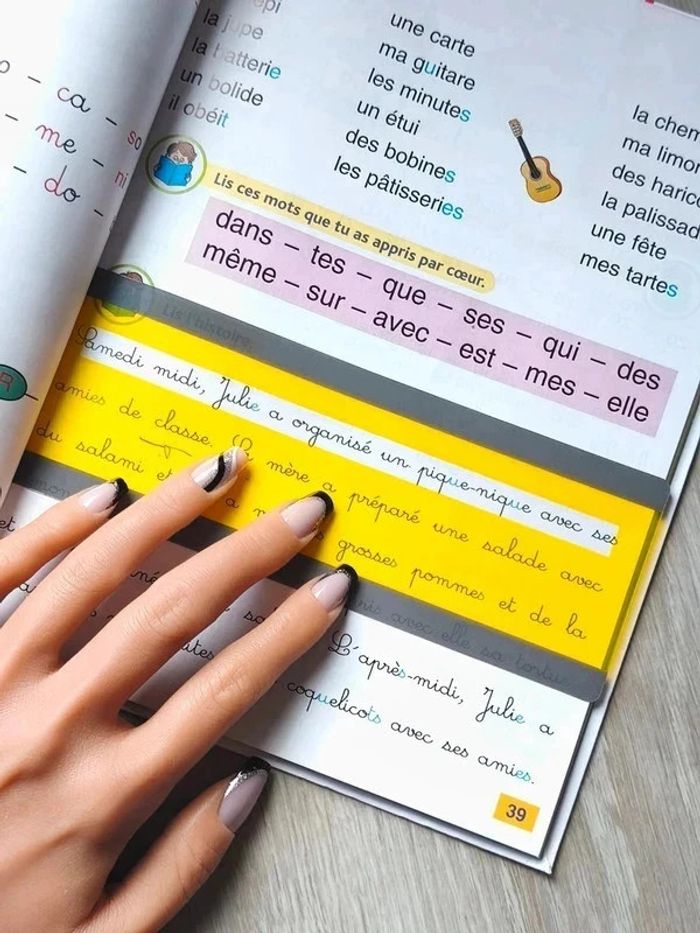 ca – so
me – ni
do –
la jupe
la batterie
un bolide
il obéit
une carte
ma guitare
les minutes
un étui
des bobines
les pâtisseries
la chem
ma limon
des harico
la palissad
une fête
mes tartes
Lis ces mots que tu as appris par cœur.
dans – tes – que – ses – qui – des
même – sur – avec – est – mes – elle
Lis l'histoire.
Samedi midi, Julie a organisé un pique-nique avec ses
amies de classe. mère a préparé une salade avec
du salami et a grosses pommes et de la
avec elle sa tortue
L'après-midi, Julie a
coquelicots avec ses amies.
39